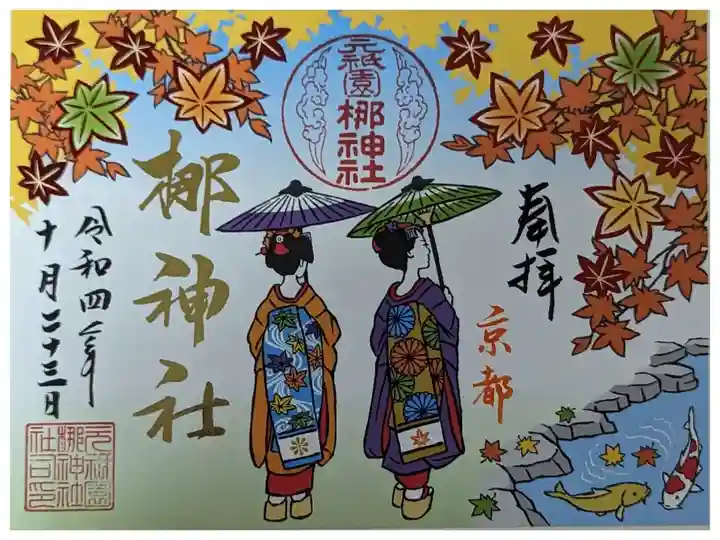 奉拝
京都
元祇園
梛神社
梛神社
令和四年
十月二十三日
元祇園
梛神社
社印